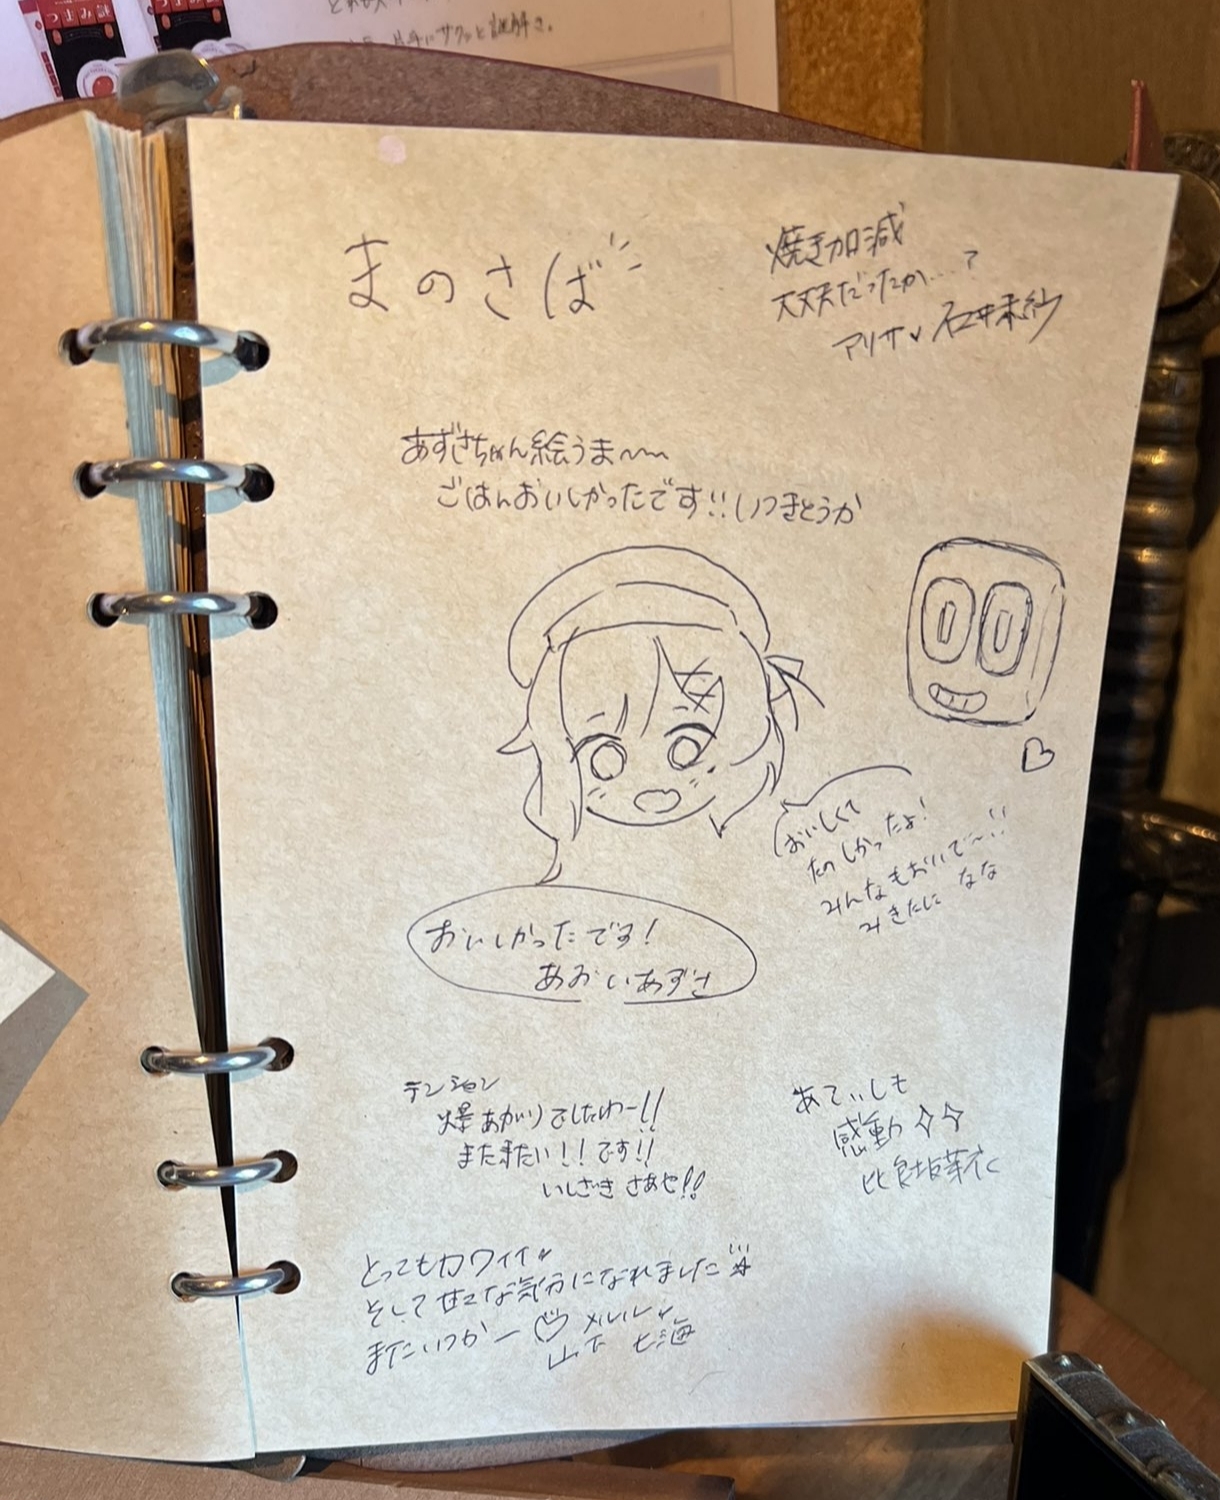 片手にサクッと謎解き。
まのさば
焼き加減
大丈夫だったか…?
アリサ 石井未紗
あずさちゃん絵うま〜〜
ごはんおいしかったです!!いつきとうか
おいしくて
たのしかったよ!
みんなもおいで〜!!
みきたに なな
おいしかったです!
あおいあずさ
テンション
爆あがりでしたわー!!
また来たい!!です!!
いしざき さあや!!
あてぃしも
感動
比良坂芽衣
とってもカワイイ
そして甘々な気分になれました
またいつかー♡ メルル
山下 七海